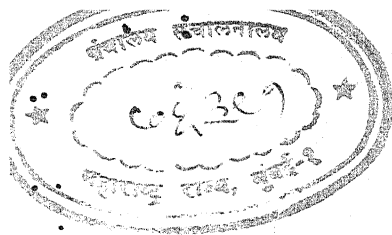 ग्रंथालय संचालनालय
७६३९१
महाराष्ट्र राज्य, मुंबई-१